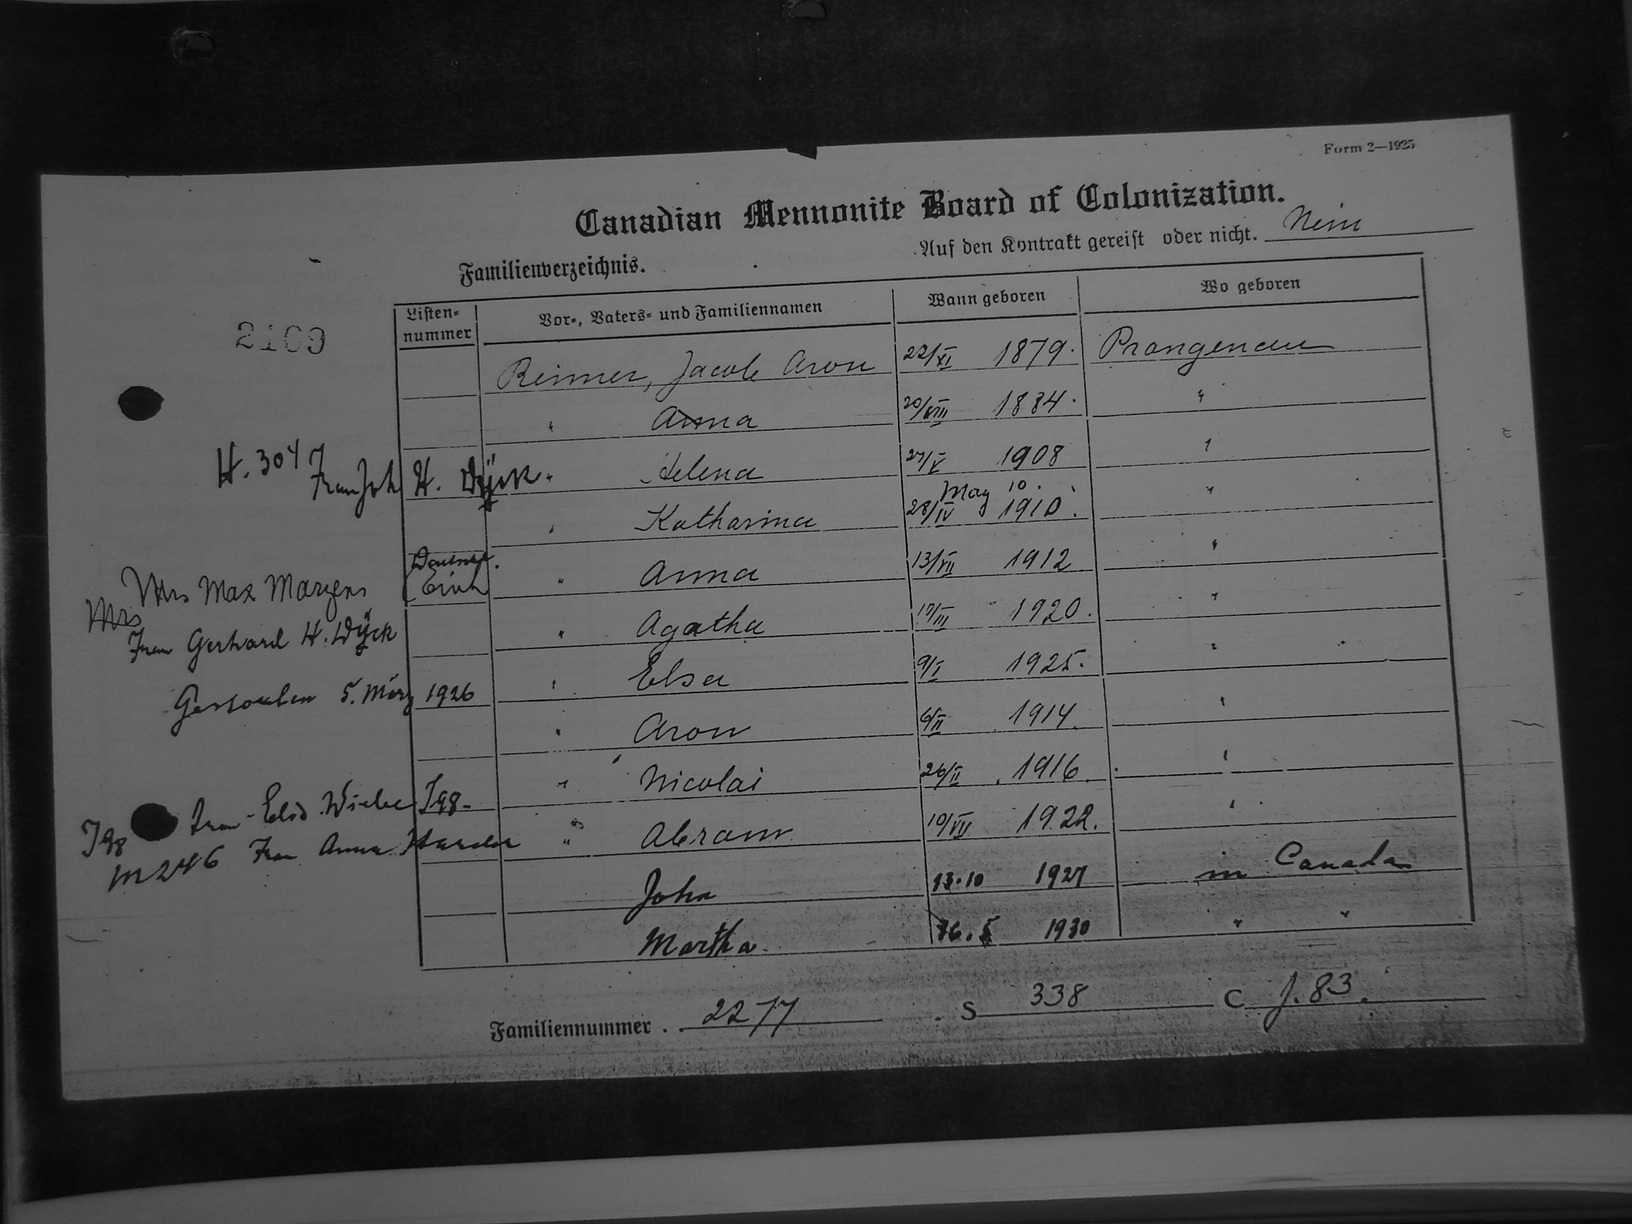 Form 2—1925
Canadian Mennonite Board of Colonization.
Auf den Kontrakt gereist oder nicht. Nein
Familienverzeichnis.
Listen-nummer Vor-, Vaters- und Familiennamen Wann geboren Wo geboren
2169
Reimer, Jacob Aron 22/XI 1879. Prangenau
" Anna 20/VIII 1884. "
H. 304 Frau Joh. H. Dÿck. " Helena 27/V 1908 "
May 10.
" Katharina 28/IV 1910. "
Mrs Max Margens " Anna 13/VII 1912 "
Mrs
Frau Gerhard H. Dÿck " Agatha 19/III 1920. "
Gestorben 5. März 1926 " Elsa 9/I 1925. "
" Aron 6/II 1914. "
" Nicolai 26/II 1916. "
J98 Frau Elis. Wiebe J98- " Abram 10/VII 1922. "
M246 Frau Anna Harder
John 13.10 1927 in Canada
Martha. 1930 " "
Familiennummer. 2277 S 338 C J. 83.